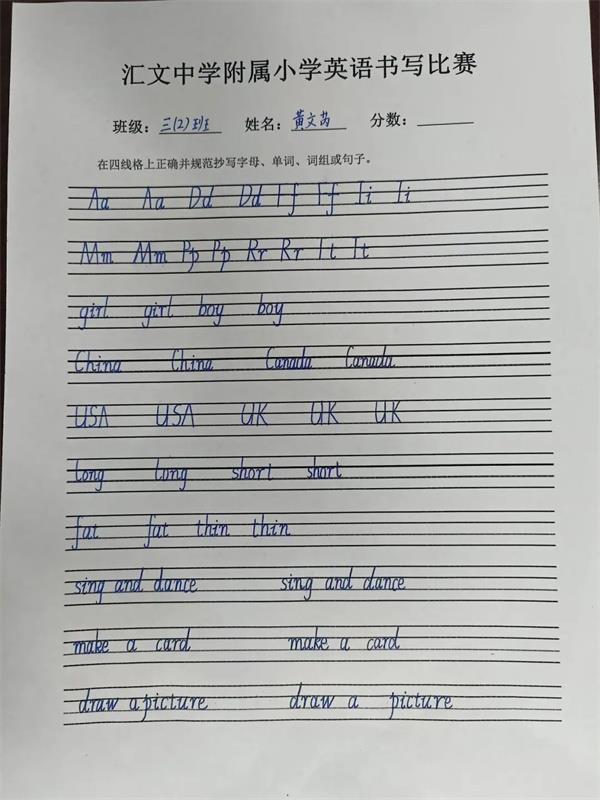 汇文中学附属小学英语书写比赛
班级：三(2)班 姓名：黄文芮 分数：
在四线格上正确并规范抄写字母、单词、词组或句子。
Aa Aa Dd Dd Ff Ff Ii Ii
Mm Mm Pp Pp Rr Rr Tt Tt
girl girl boy boy
China China Canada Canada
USA USA UK UK UK
long long short short
fat fat thin thin
sing and dance sing and dance
make a card make a card
draw a picture draw a picture